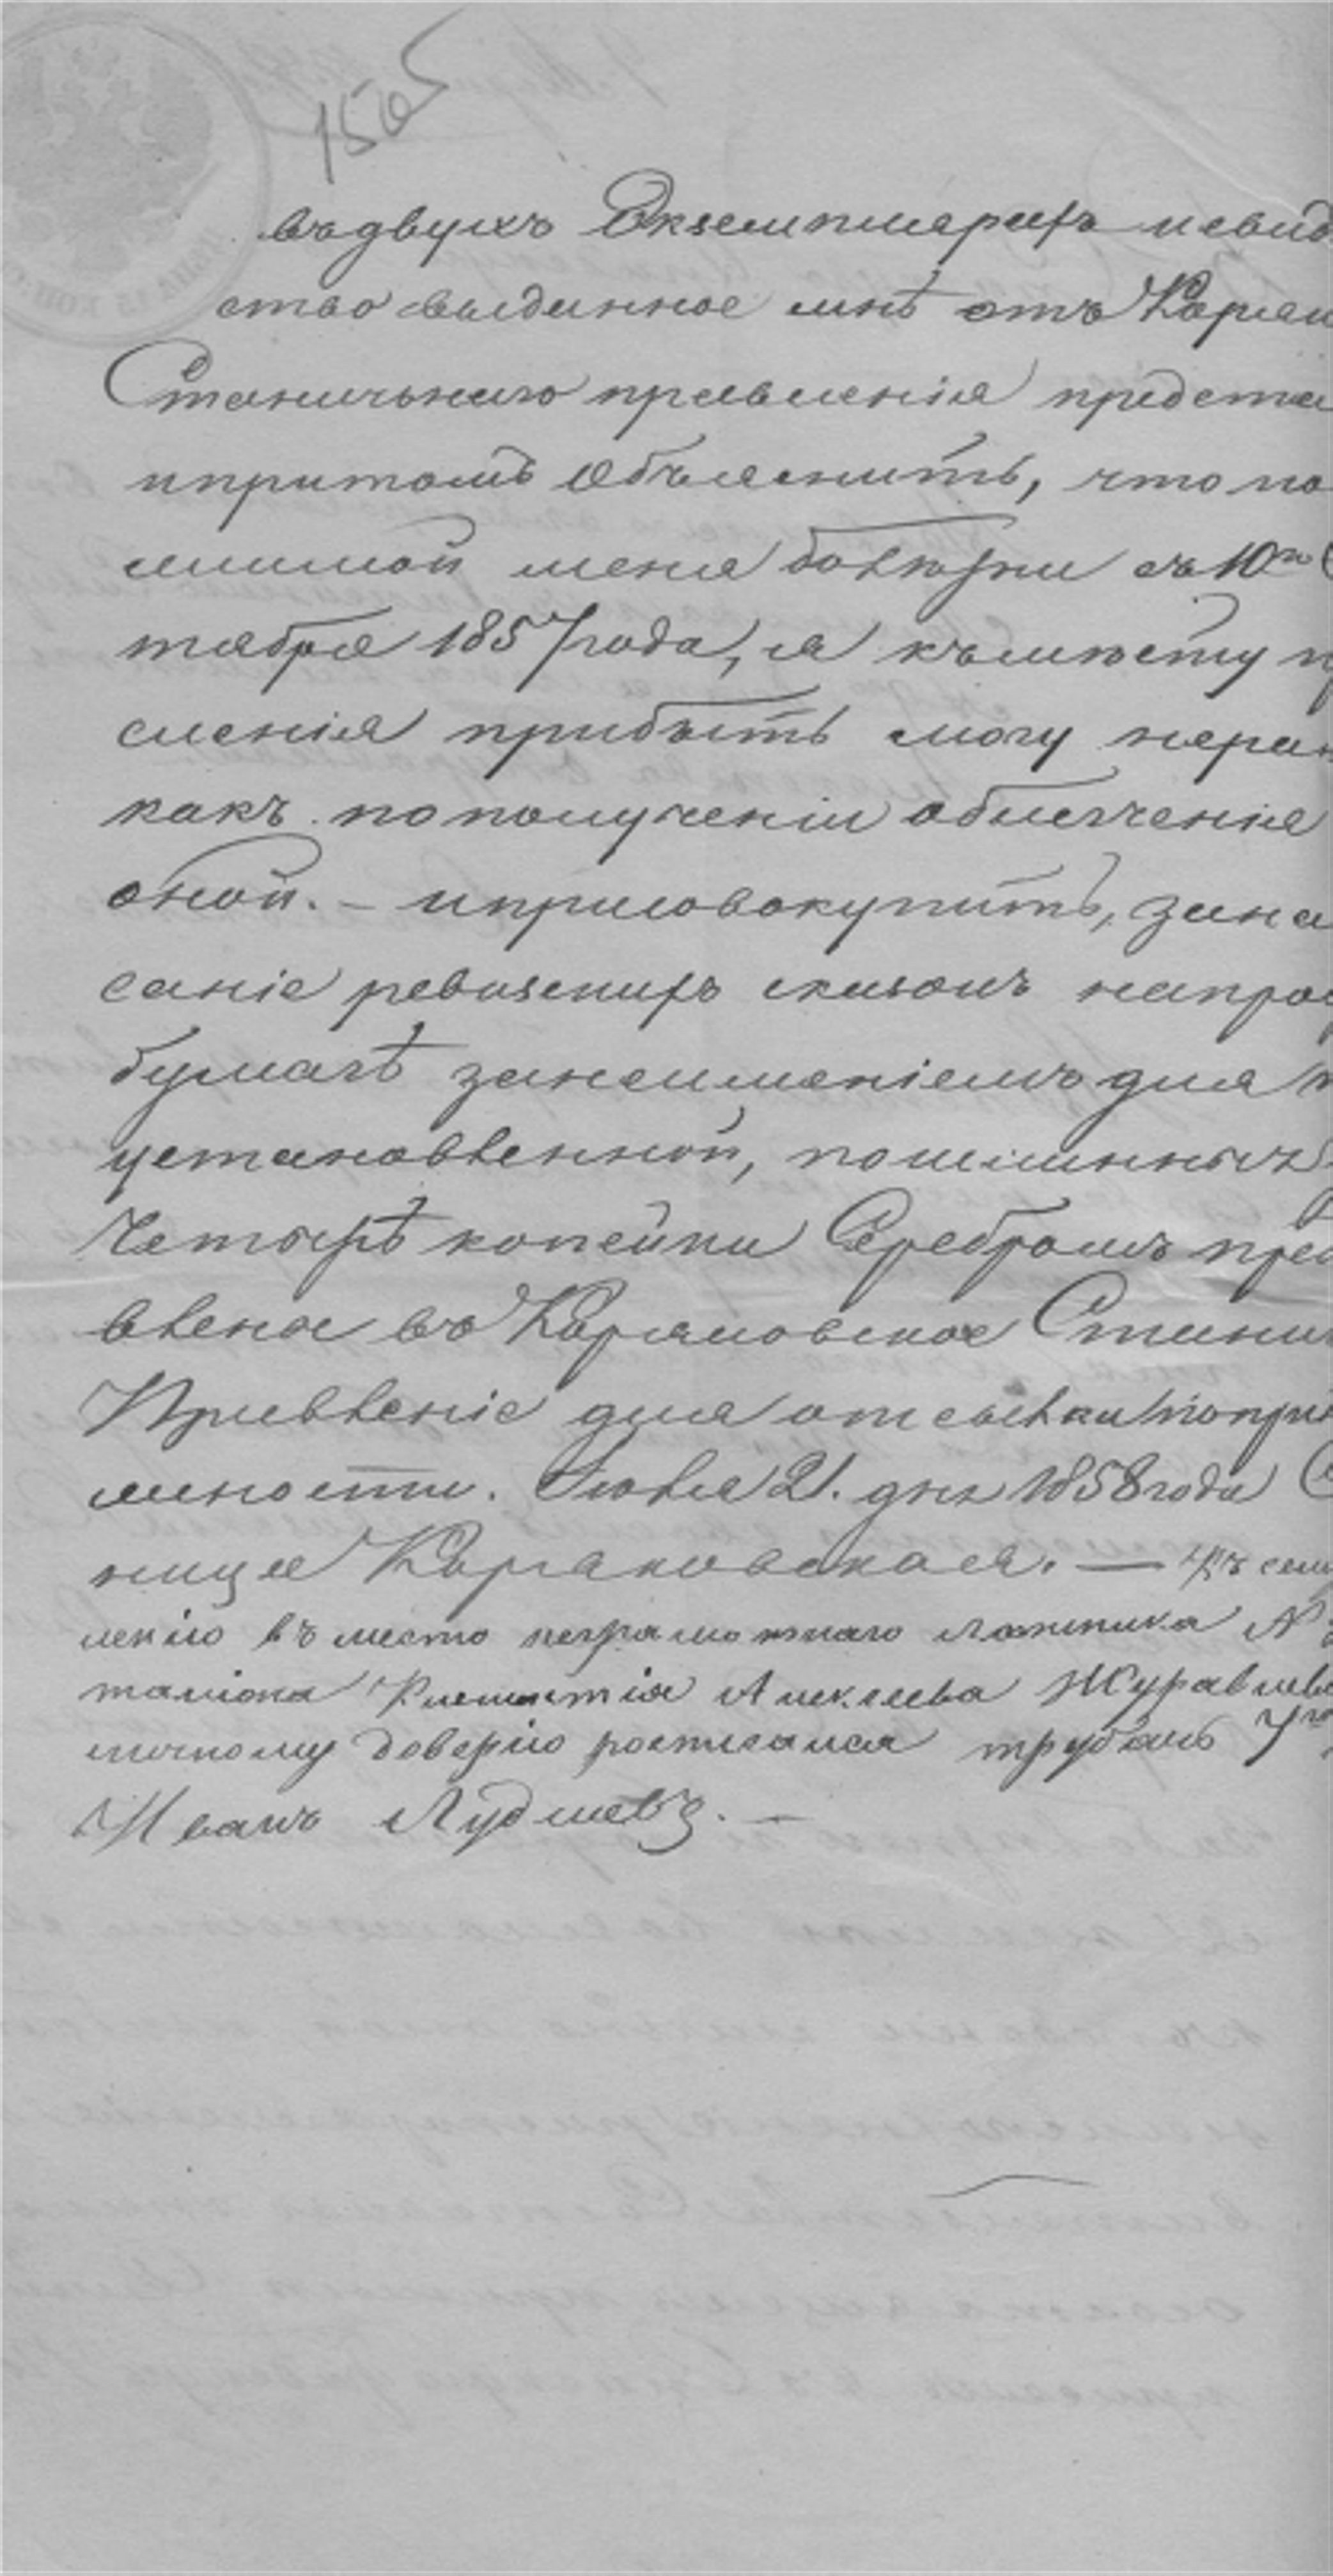 150
въдвухъ Экземплярахъ исвид
ство выданное мнѣ отъ Карган
Станичьнаго правленія предста
ипритомъ Объяснить, что по
меня болѣзни съ 10го
тября 1857 года, я къмѣсту п
сленія прибыть могу неран
какъ пополученіи облегченія
оной. – иприсовокупить, зана
саніе ревизскихъ сказокъ напрос
бумагѣ занеимѣніемъ для
установленной, пошлинныхъ
Четырѣ копейки Серебромъ пред
влена въ Станич
Правленіе для отсылки попри
лжности. Іюля 21. дня 1858 года С
ница – Къ сему
ленію въместо неграмотнаго
таліона Алексеева Журавлева
личному доверію росписался трубачь 7го
Иванъ